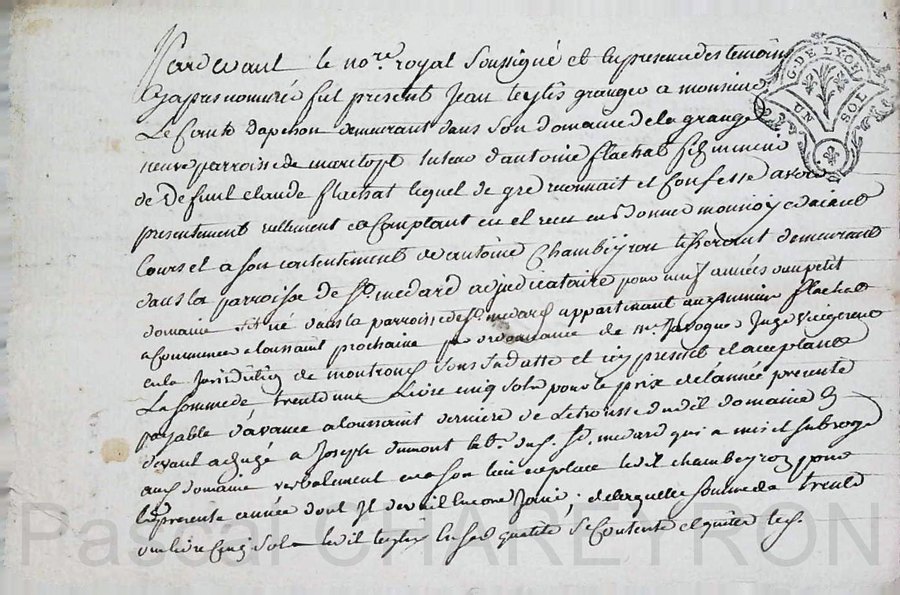 Pardevant le no.re royal Soussigné et en presence des temoins
cy apres nommés fut present Jean teyter granger a monsieur
Le Comte dapchon demeurant dans son domaine de la grange
neuve parroisse de marclopt tuteur d'antoine flachat fils mineur
de Defunt claude flachat lequel de gré reconnait et Confesse avoir
presentement reellement et Comptant eu et recu en bonne monnoye aiant
Cours et a son contentement de antoine Chambeyron tisserant demeurant
dans la parroisse de St. medard adjudicataire pour neuf années du petit
domaine situé dans la parroisse de St. medard appartenant au mineur flachat
a Commencer a toussaint prochaine par ordonnance de mr. Javogue Juge Vicegerent
en la Jurisdiction de montrond sous Sa datte et icy present et acceptant
La somme de trente une Livre cinq sols pour le prix de l'année presente
payable d'avance a toussaint derniere de Letrousse dudit domaine
devant adjugé a Joseph dumont dud. St. medard qui a mis et subrogé
aud. domaine verbalement en son lieu et place ledit chambeyron pour
la presente année dont Il devait Encore Jouir, de laquelle somme de trente
une livre Cinq sols ledit teyter en sad. qualité se Contente et quitte led.
G. DE LYON
UN SOL
Pascal CHAREYRON